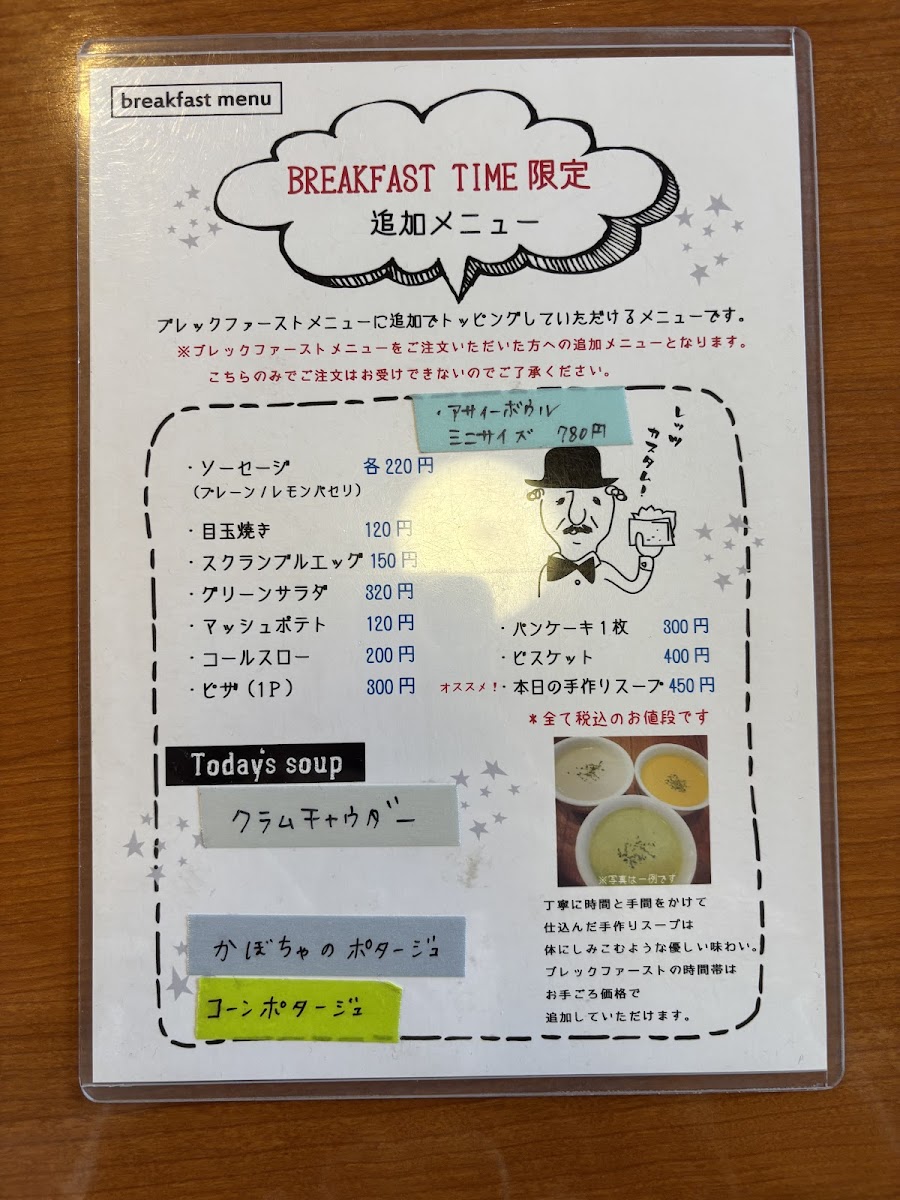 breakfast menu
BREAKFAST TIME 限定
追加メニュー
ブレックファーストメニューに追加でトッピングしていただけるメニューです。
※ブレックファーストメニューをご注文いただいた方への追加メニューとなります。
こちらのみでご注文はお受けできないのでご了承ください。
・アサイーボウル
ミニサイズ 780円
レッツ
カスタム!
・ソーセージ 各220円
(プレーン/レモンパセリ)
・目玉焼き 120円
・スクランブルエッグ 150円
・グリーンサラダ 320円
・マッシュポテト 120円
・コールスロー 200円
・ピザ(1P) 300円
・パンケーキ1枚 300円
・ビスケット 400円
オススメ!・本日の手作りスープ 450円
*全て税込のお値段です
Today's soup
クラムチャウダー
かぼちゃのポタージュ
コーンポタージュ
※写真は一例です
丁寧に時間と手間をかけて
仕込んだ手作りスープは
体にしみこむような優しい味わい。
ブレックファーストの時間帯は
お手ごろ価格で
追加していただけます。